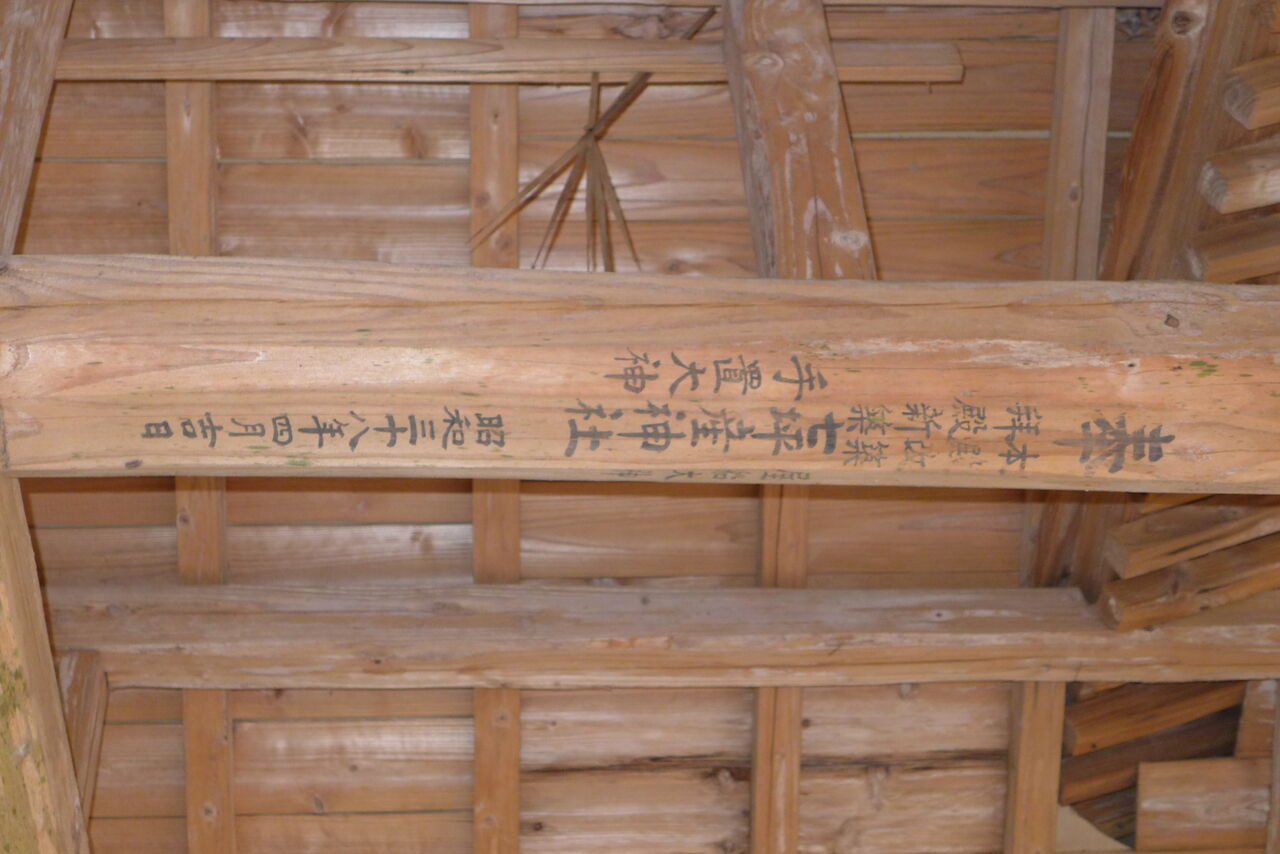 奉
改築
拝殿新築
七坪産神社
昭和三十八年四月吉日
手置大神